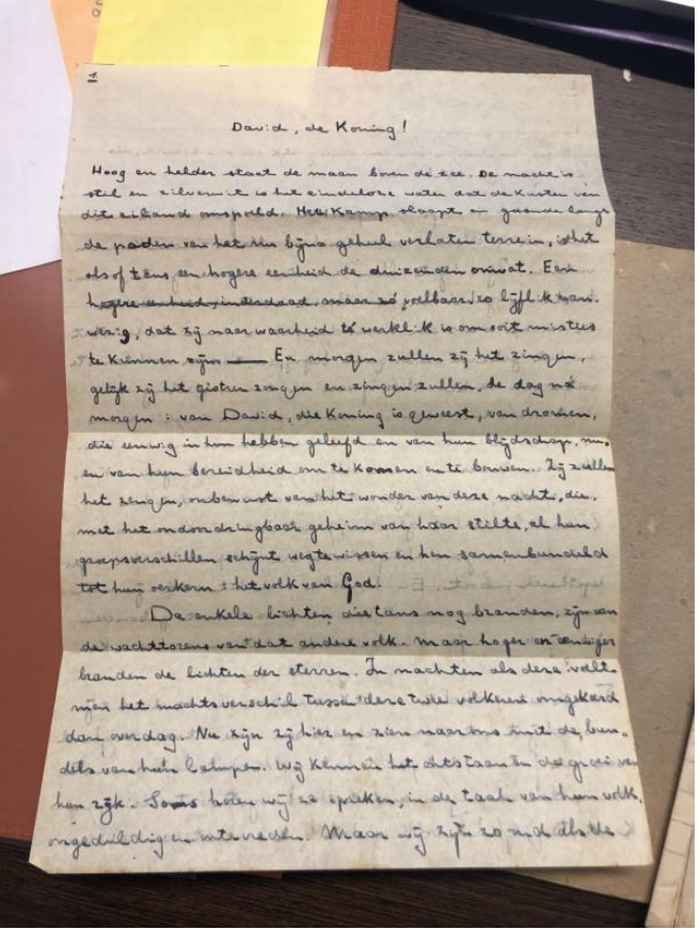 1
David, de Koning!
Hoog en helder staat de maan boven de zee. De nacht is
stil en zilverwit is het eindeloze water dat de kusten van
dit eiland omspoeld. Het Kamp slaapt en gaande langs
de paden van het nu bijna geheel verlaten terrein, is het
alsof tans een hogere eenheid de duizenden omvat. Een
hogere eenheid, inderdaad, maar zó voelbaar, zo lijflik aan-
wezig, dat zij naar waarheid té werklik is om ooit misties
te kunnen zijn. — En morgen zullen zij het zingen,
gelijk zij het gistren zongen en zingen zullen, de dag ná
morgen: van David, die Koning is geweest, van dromen,
die eeuwig in hun hebben geleefd en van hun blijdschap, nu,
en van hun bereidheid om te komen en te bouwen. Zij zullen
het zingen, onbewust van het wonder van deze nacht, die,
met het ondoordringbaar geheim van haar stilte, al hun
groepsverschillen schijnt weg te wissen en hen samenbundeld
tot hun oerkern: het volk van God.
De enkele lichten die tans nog branden, zijn van
de wachttorens van dat andere volk. Maar hoger en
branden de lichten der sterren. In nachten als deze valt
men het machtsverschil tussen deze twee volkeren omgekeerd
dan overdag. Nu zijn zij hier en zien naar ons uit de bun-
dels van hun lampen. Wij kennen het ontstaan en de groei van
hun rijk. Soms horen wij ze spreken, in de taal van hun volk,
ongeduldig en ontevreden. Maar wij zijn zo oud als de